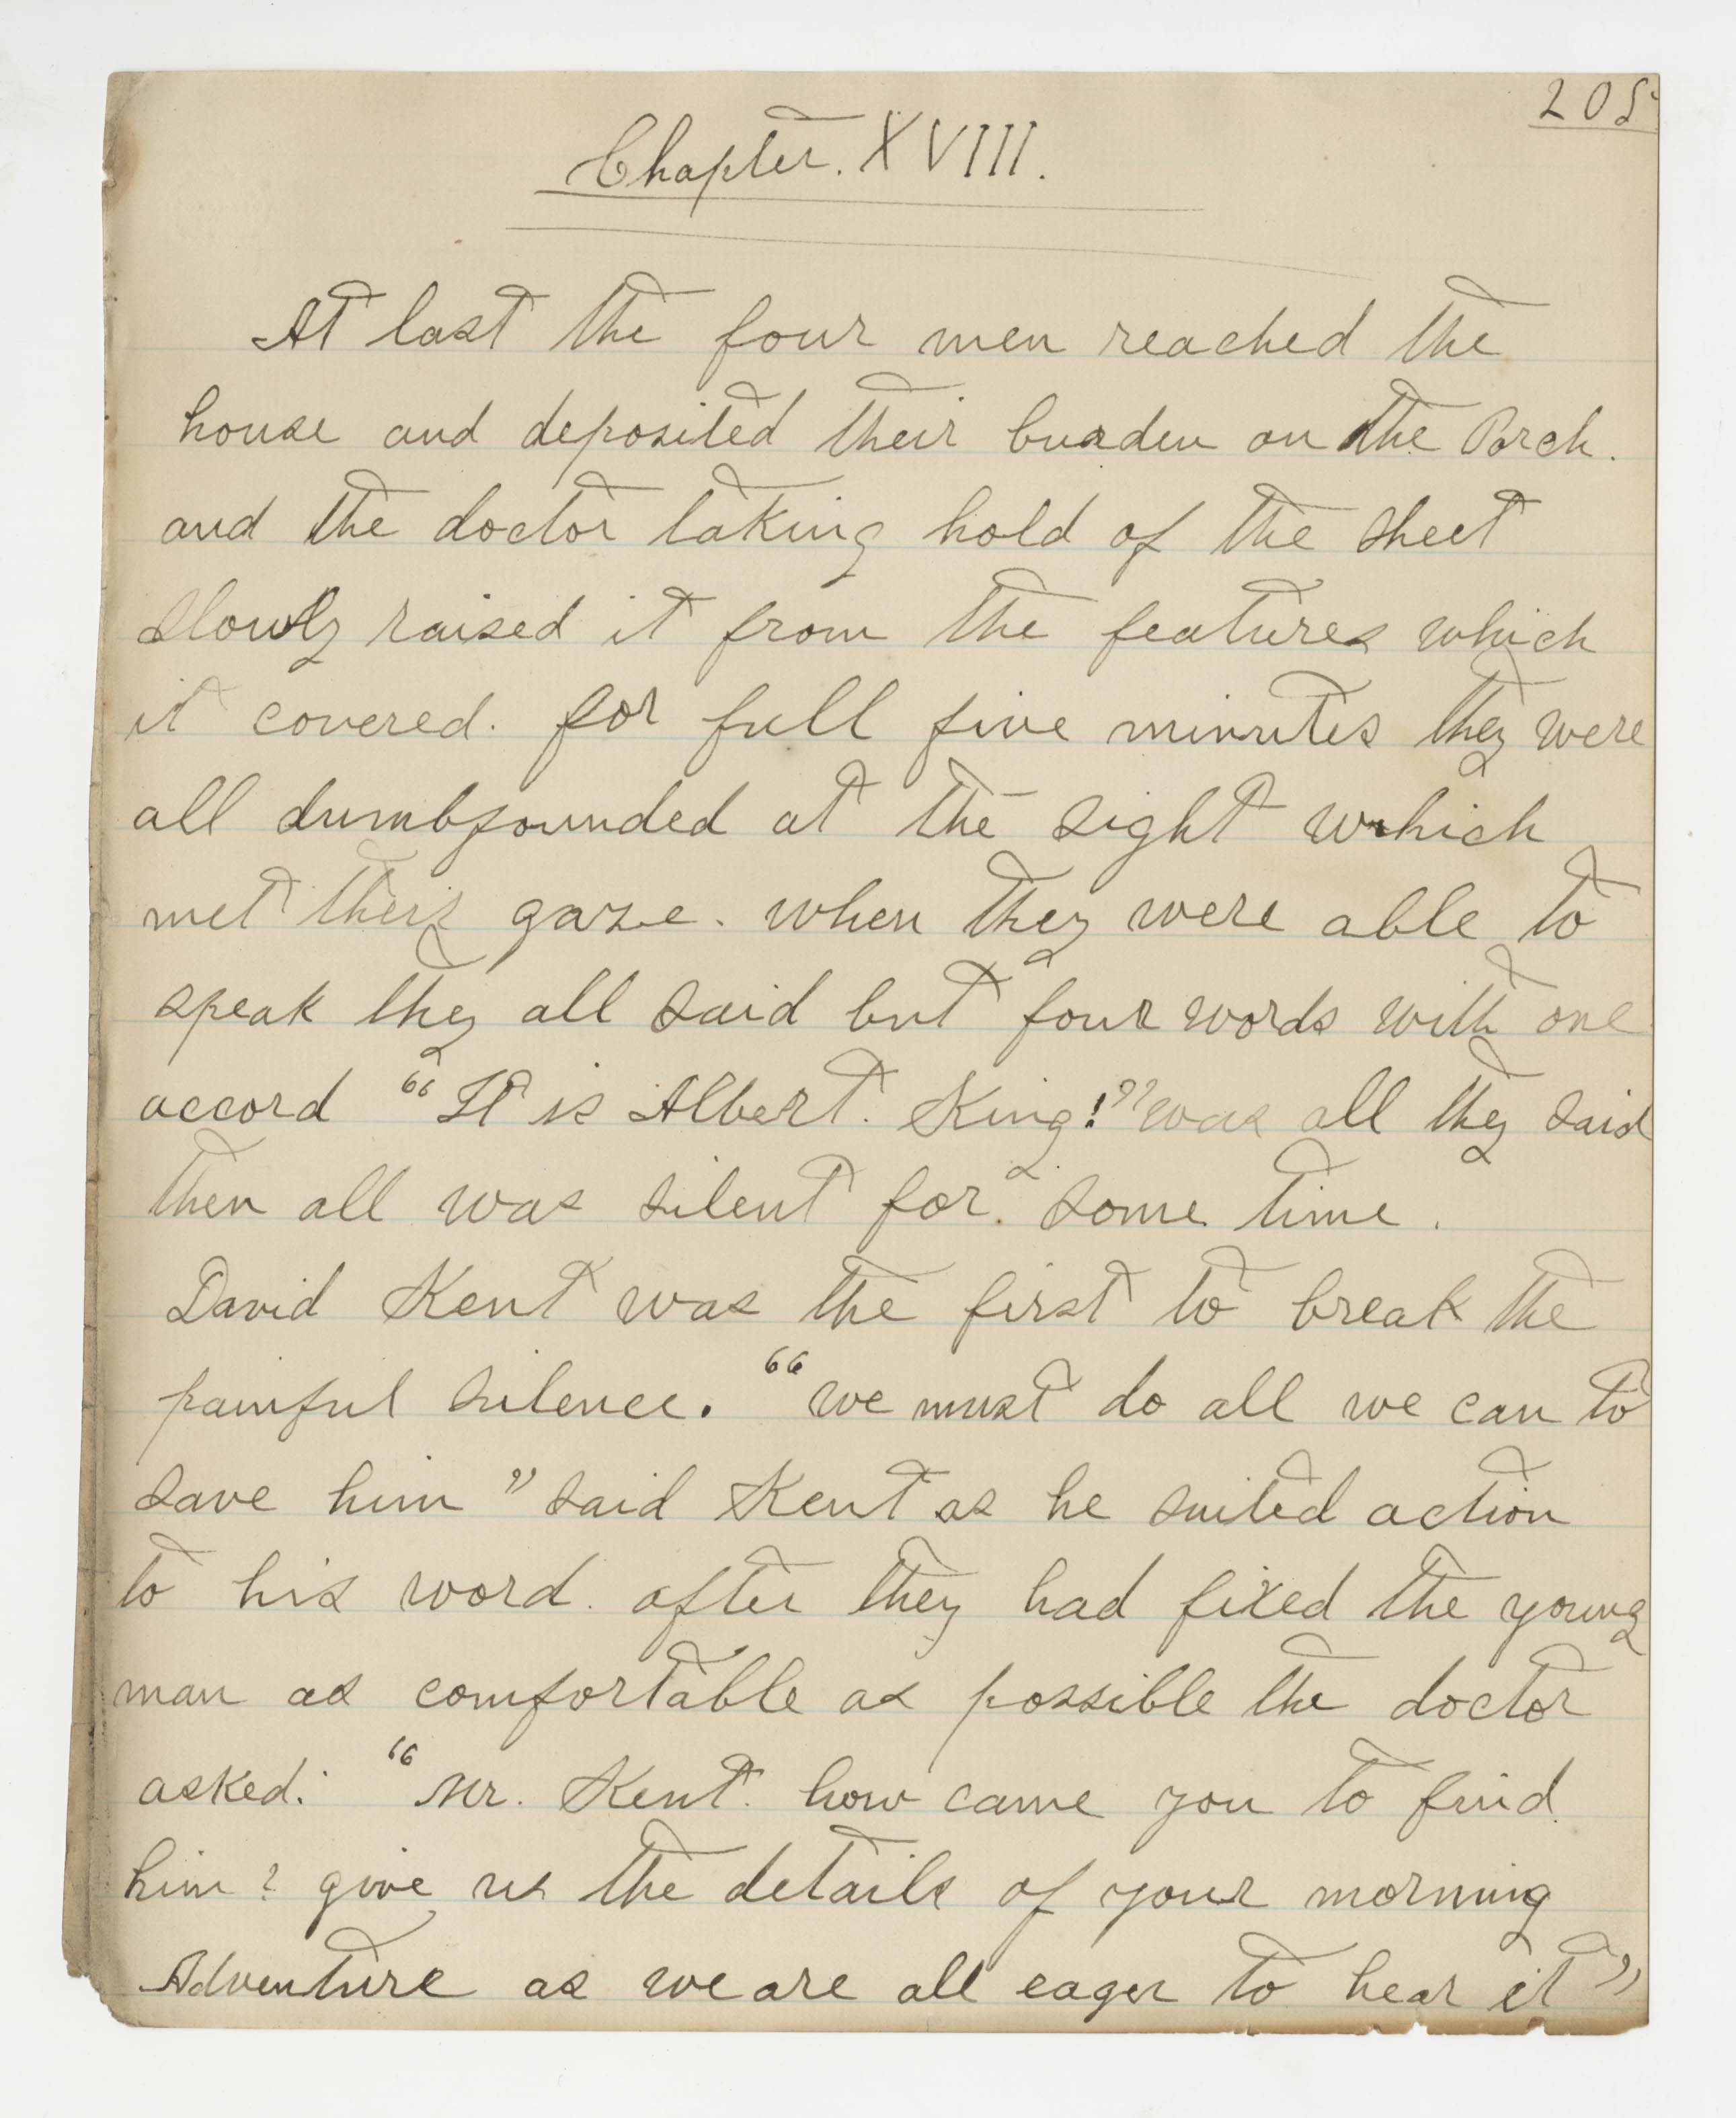 205
Chapter. XVIII.
At last the four men reached the
house and deposited their burden on the Porch.
and the doctor taking hold of the sheet
slowly raised it from the features which
it covered. for full five minutes they were
all dumbfounded at the sight which
met their gaze. when they were able to
speak they all said but four words with one
accord “It is Albert. King!” was all they said
then all was silent for some time.
David Kent was the first to break the
painful silence. “we must do all we can to
save him” said Kent as he suited action
to his word. after they had fixed the young
man as comfortable as possible the doctor
asked: “Mr. Kent. how came you to find
him? give us the details of your morning
Adventure as we are all eager to hear it”